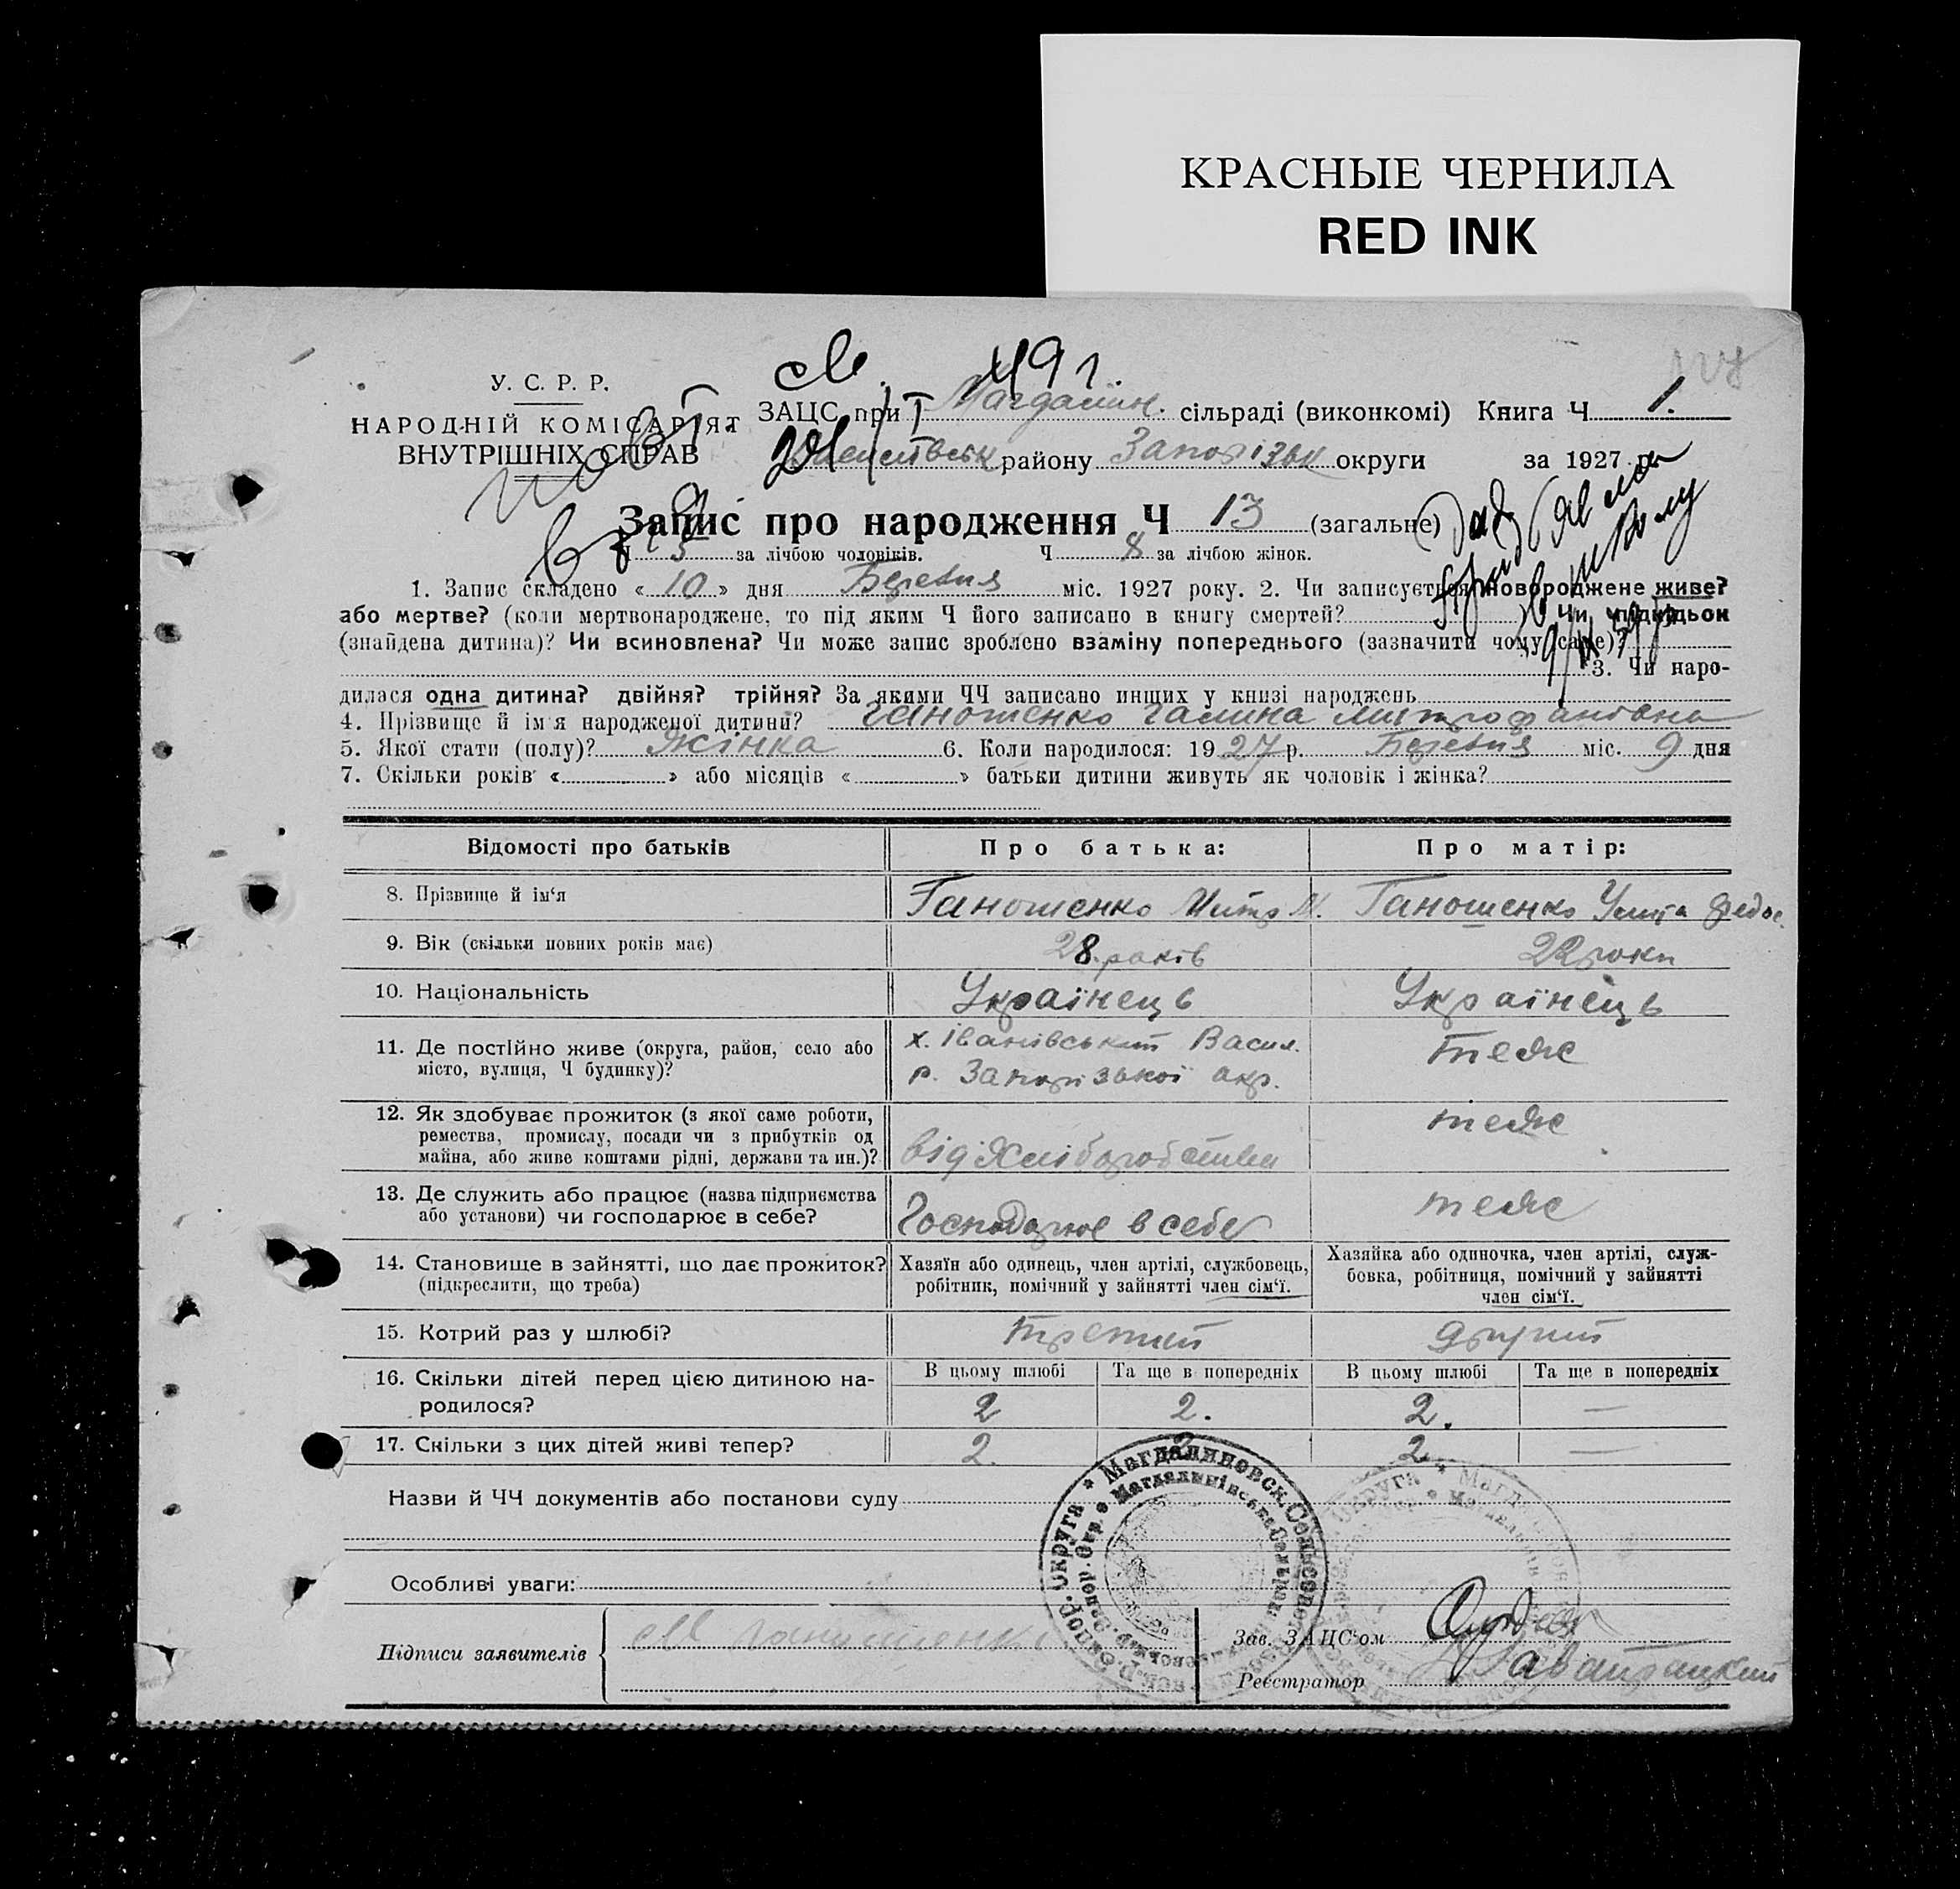 КРАСНЫЕ ЧЕРНИЛА
RED INK
У. С. Р. Р.
НАРОДНІЙ КОМІСАРІЯТ
ВНУТРІШНІХ СПРАВ
ЗАЦС при Магдалин. сільраді (виконкомі) Книга Ч 1.
району Запорізьк округи за 1927 р.
Запис про народження Ч 13 (загальне)
Ч 5 за лічбою чоловіків. Ч 8 за лічбою жінок.
1. Запис складено « 10 » дня Березня міс. 1927 року. 2. Чи записується новороджене живе?
або мертве? (коли мертвонароджене, то під яким Ч його записано в книгу смертей? ) Чи підкидьок
(знайдена дитина)? Чи всиновлена? Чи може запис зроблено взаміну попереднього (зазначити чому саме)?
3. Чи наро-
дилася одна дитина? двійня? трійня? За якими ЧЧ записано инших у книзі народжень
4. Прізвище й ім'я народженої дитини? Ганошенко Галина Митрофанівна
5. Якої стати (полу)? Жінка 6. Коли народилося: 1927 р. Березня міс. 9 дня
7. Скільки років « » або місяців « » батьки дитини живуть як чоловік і жінка?
Відомості про батьків Про батька: Про матір:
8. Прізвище й ім'я Ганошенко Митр М. Ганошенко Федос.
9. Вік (скільки повних років має) 28 років 22 роки
10. Національність Українець Українець
11. Де постійно живе (округа, район, село або х. Іванівський Васил. теж
місто, вулиця, Ч будинку)? р. Запорізької окр.
12. Як здобуває прожиток (з якої саме роботи, теж
ремества, промислу, посади чи з прибутків од
майна, або живе коштами рідні, держави та ин.)? від Хліборобства
13. Де служить або працює (назва підприємства теж
або установи) чи господарює в себе? Господарює в себе
14. Становище в зайнятті, що дає прожиток? Хазяїн або одинець, член артілі, службовець, Хазяйка або одиночка, член артілі, служ-
(підкреслити, що треба) робітник, помічний у зайнятті член сім'ї. бовка, робітниця, помічний у зайнятті
член сім'ї.
15. Котрий раз у шлюбі? третий другий
16. Скільки дітей перед цією дитиною на- В цьому шлюбі Та ще в попередніх В цьому шлюбі Та ще в попередніх
родилося? 2 2. 2. —
17. Скільки з цих дітей живі тепер? 2. 2 2. —
Назви й ЧЧ документів або постанови суду
Особливі уваги:
Підписи заявителів М Ганошенко
Зав. ЗАЦС'ом
Реєстратор